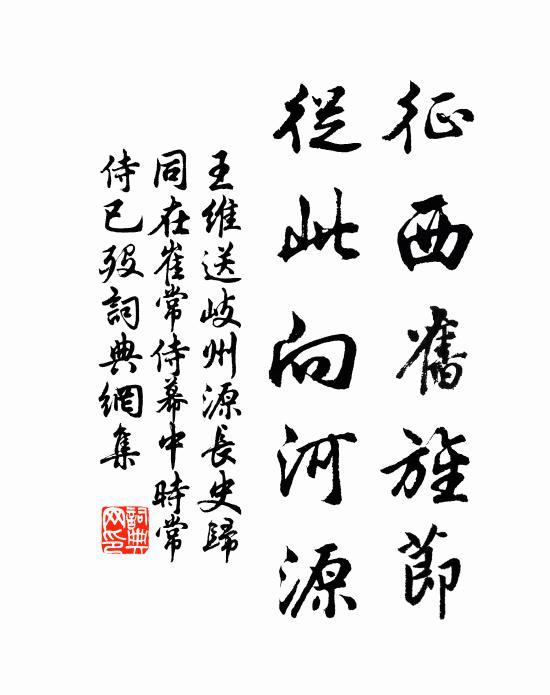 征西舊旌節
從此向河源
王維送岐州源長史歸
同在崔常侍幕中時常
侍已歿詞典網集
詞典
网印